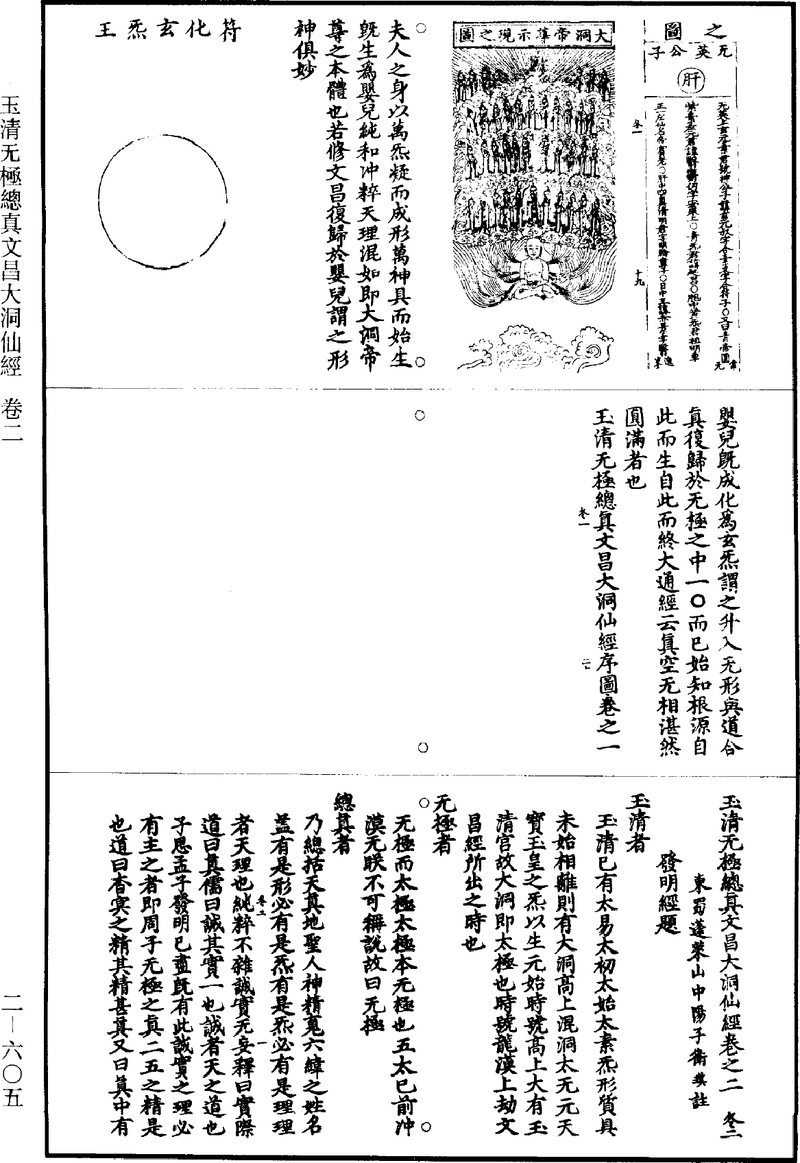 之圖
无英公子
肝
冬一
十九
大洞帝尊示現之圖
夫人之身以萬炁凝而成形萬神具而始生
旣生為嬰兒純和沖粹天理混如即大洞帝
尊之本體也若修文昌復歸於嬰兒謂之形
神俱妙
符化玄炁王
嬰兒旣成化為玄炁謂之升入无形與道合
真復歸於无極之中一〇而已始知根源自
此而生自此而終大通經云真空无相湛然
圓滿者也
玉清无極總真文昌大洞仙經序圖卷之一
冬一
二七
玉清无極總真文昌大洞仙經卷之二 冬二
東蜀蓬萊山中陽子衛琪註
發明經題
玉清者
玉清已有太易太初太始太素炁形質具
未始相離則有大洞高上混洞太无元天
寶玉皇之炁以生元始時號高上大有玉
清宮故大洞即太極也時號龍漢上劫文
昌經所出之時也
无極者
无極而太極太極本无極也五太已前沖
漠无朕不可稱說故曰无極
總真者
乃總括天真地聖人神精鬼六緯之姓名
蓋有是形必有是炁有是炁必有是理理
者天理也純粹不雜誠實无妄釋曰實際
冬二
一
道曰真儒曰誠其實一也誠者天之道也
子思孟子發明已盡旣有此誠實之理必
有主之者即周子无極之真二五之精是
也道曰杳冥之精其精甚真又曰真中有
玉清无極總真文昌大洞仙經 卷二
二—六〇五